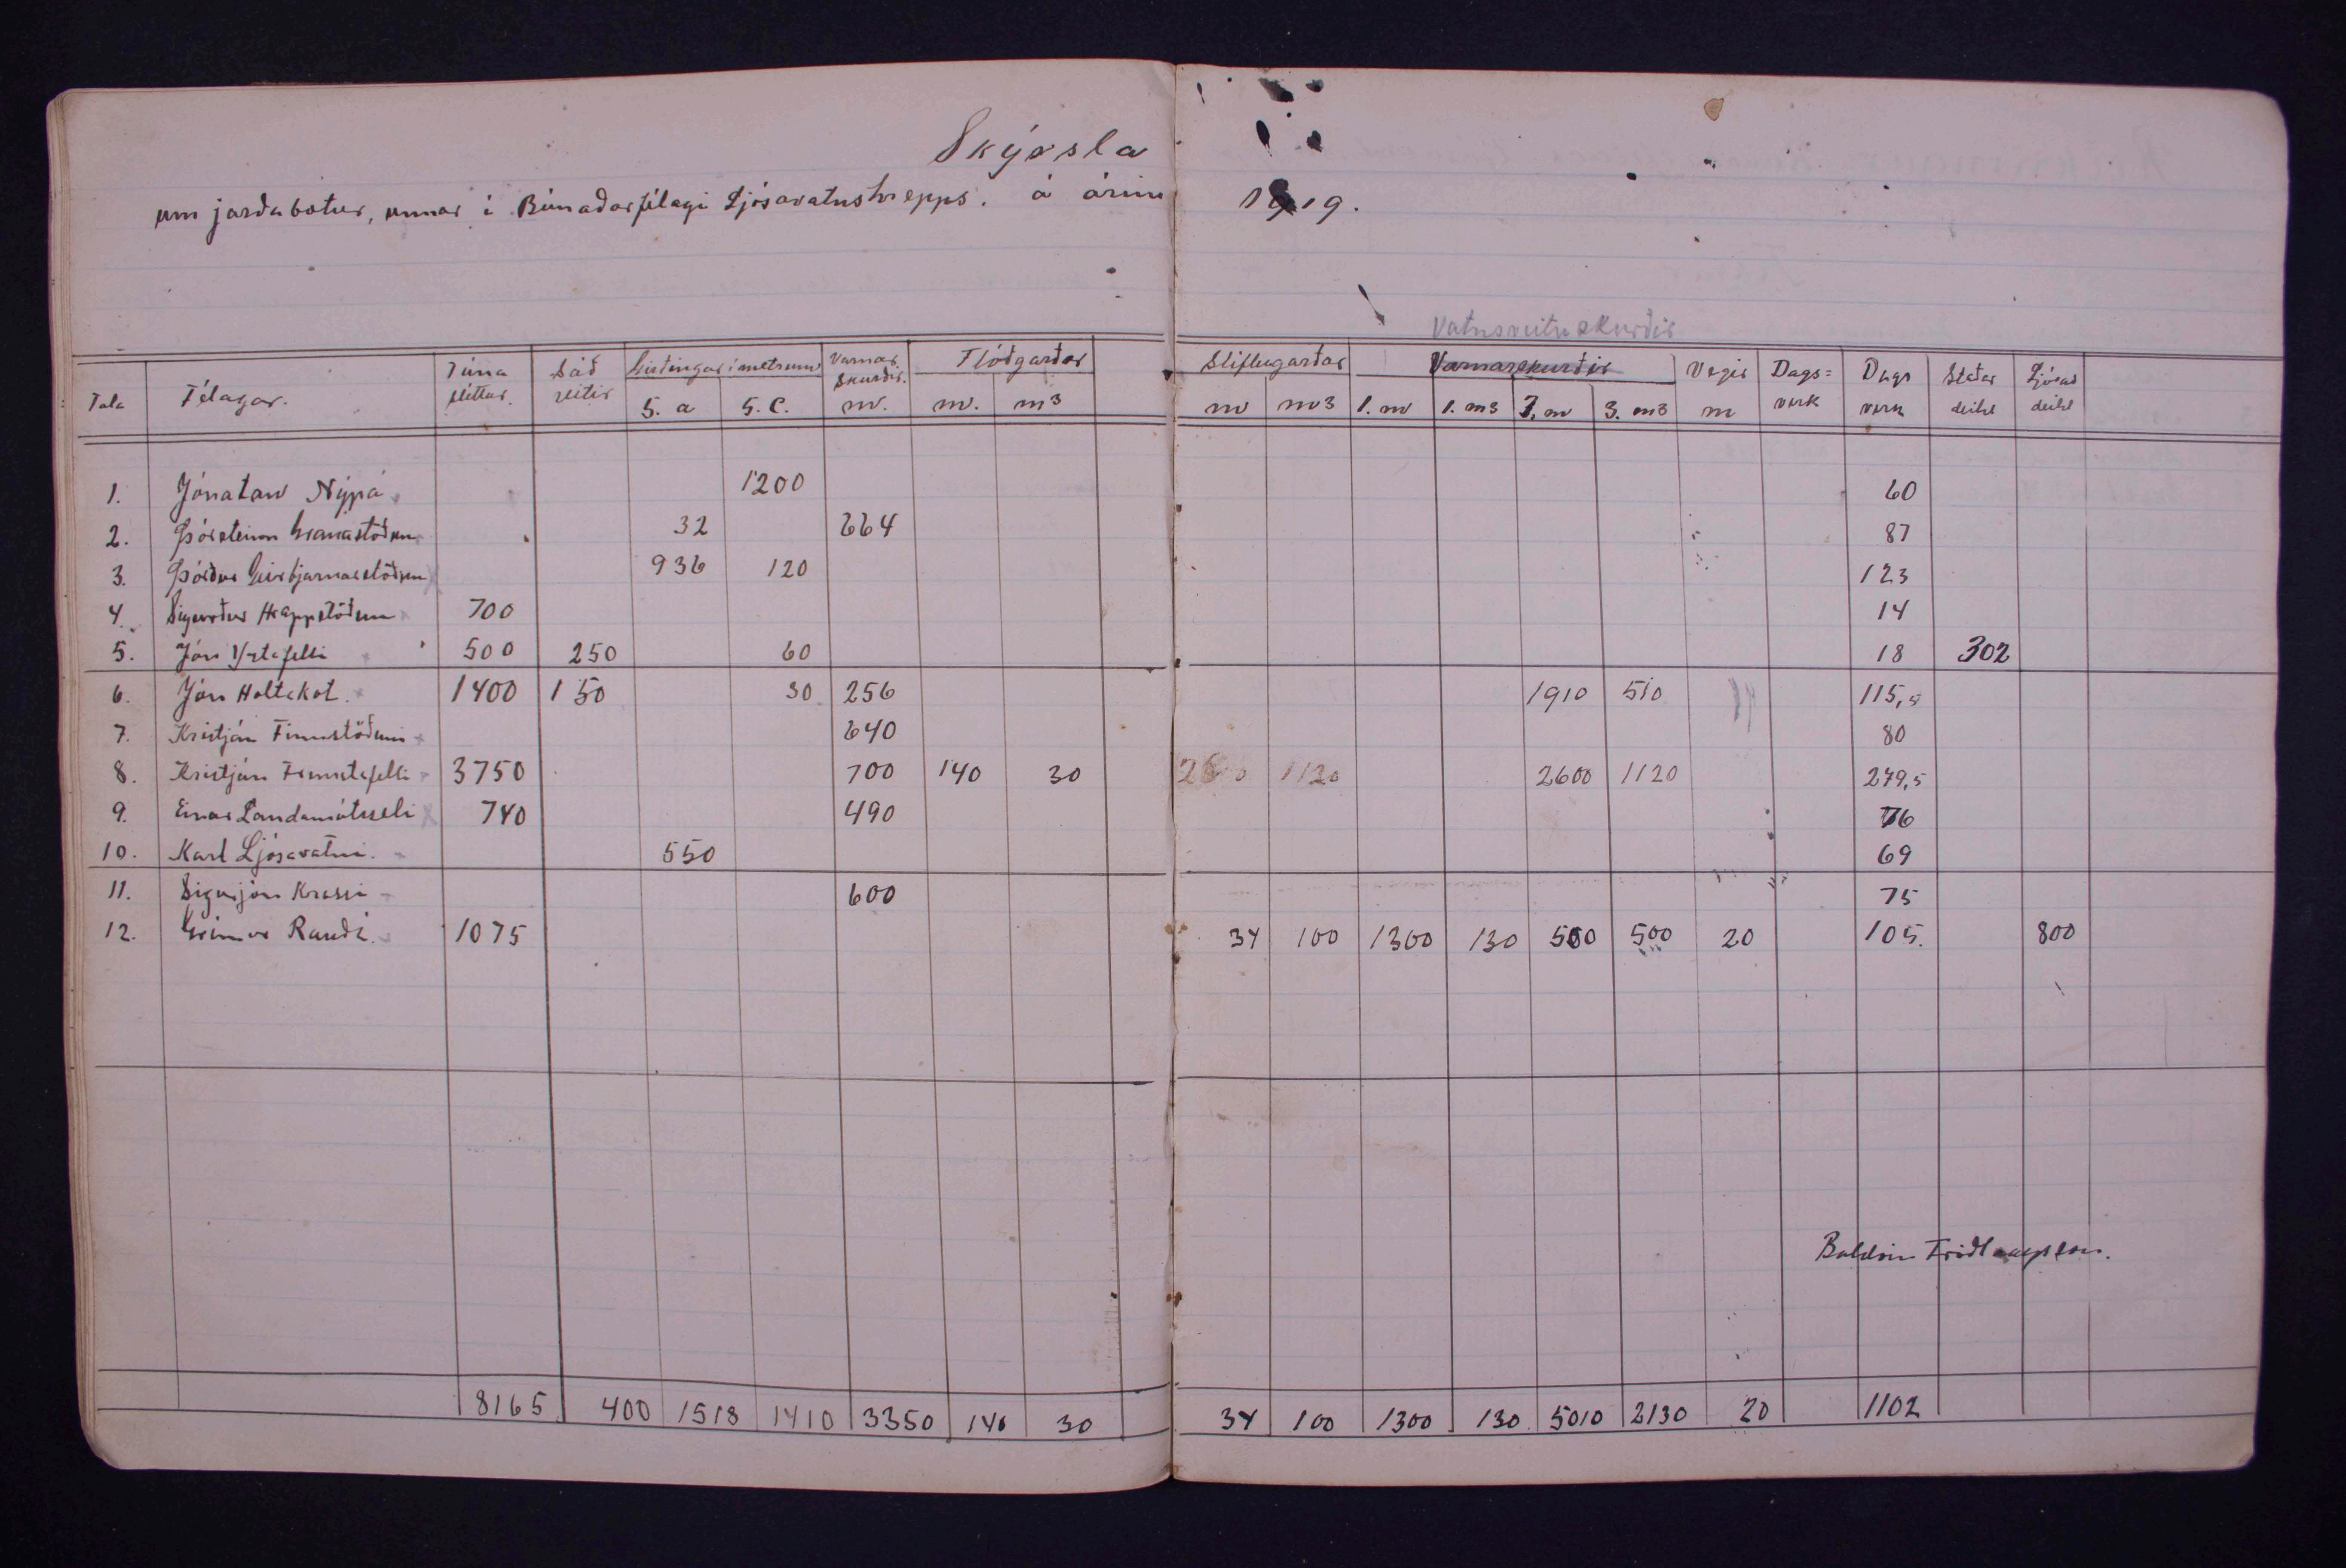 Skýrsla
um jarðabætur, unnar í Búnaðarfélagi Ljósavatnshrepps. á árinu 1919.
Vatnsveituskurðir
Tala Félagar. Túna sléttur. Sáð reitir Girðingar í metrum Varnar skurðir. Flóðgarðar Stíflugarðar Varnarskurðir Vegir Dags= verk Dags verk Staðar deild Ljósav deild
5. a 5. c. m. m. m3 m m3 1. m 1. m3 3. m 3. m3 m
1. Jónatan Nípá 1200 60
2. Þórsteinn Granastöðum 32 664 87
3. Þórður Geirbjarnarstöðum 936 120 123
4. Sigurður Hrappstöðum 700 14
5. Jón Ystafelli 500 250 60 18 302
6. Jón Holtakot. 1400 150 30 256 1910 510 115,5
7. Kristján Finnstöðum 640 80
8. Kristján Fremstafelli 3750 700 140 30 2600 1120 2600 1120 279,5
9. Einar Landamótsseli 740 490 76
10. Karl Ljósavatni. 550 69
11. Sigurjón Krossi 600 75
12. Grímur Rauðá. 1075 34 100 1300 130 500 500 20 105. 800
Baldvin Friðlaugsson.
8165 400 1518 1410 3350 140 30 34 100 1300 130 5010 2130 20 1102